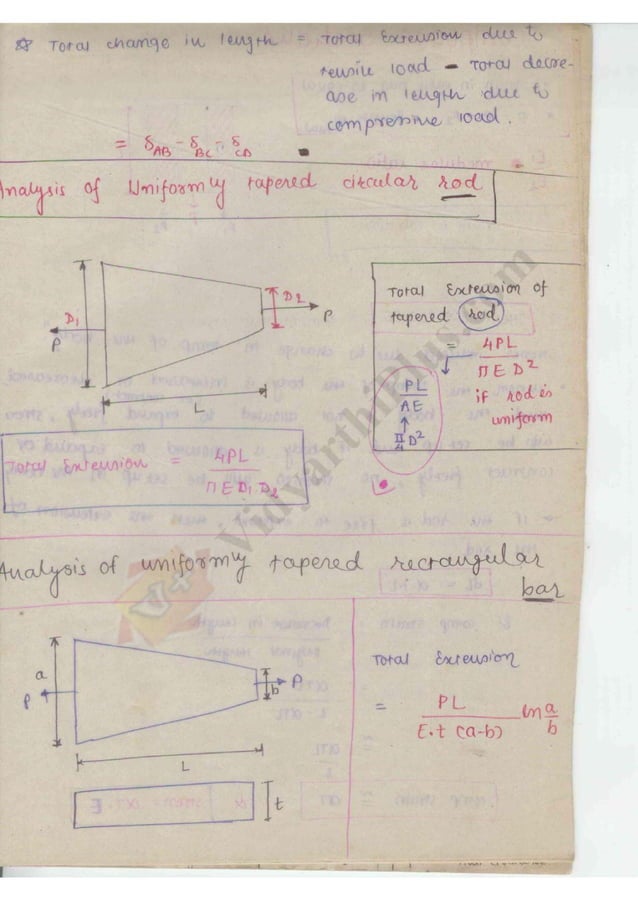 ☆ Total change in length = Total Extension due to
tensile load - Total decre-
ase in length due to
compressive load.
= δAB - δBC + δCD
Analysis of Uniformly tapered circular rod
D1
P
D2
P
L
Total Extension of
tapered rod
= 4PL / π E D²
if rod is
uniform
PL / AE
π/4 D²
Total Extension = 4PL / π E D1 D2
Analysis of uniformly tapered rectangular
bar
a
P
b
P
L
t
Total Extension
= PL / E.t (a-b) ln a/b
VidyarthiPlus.com
V+